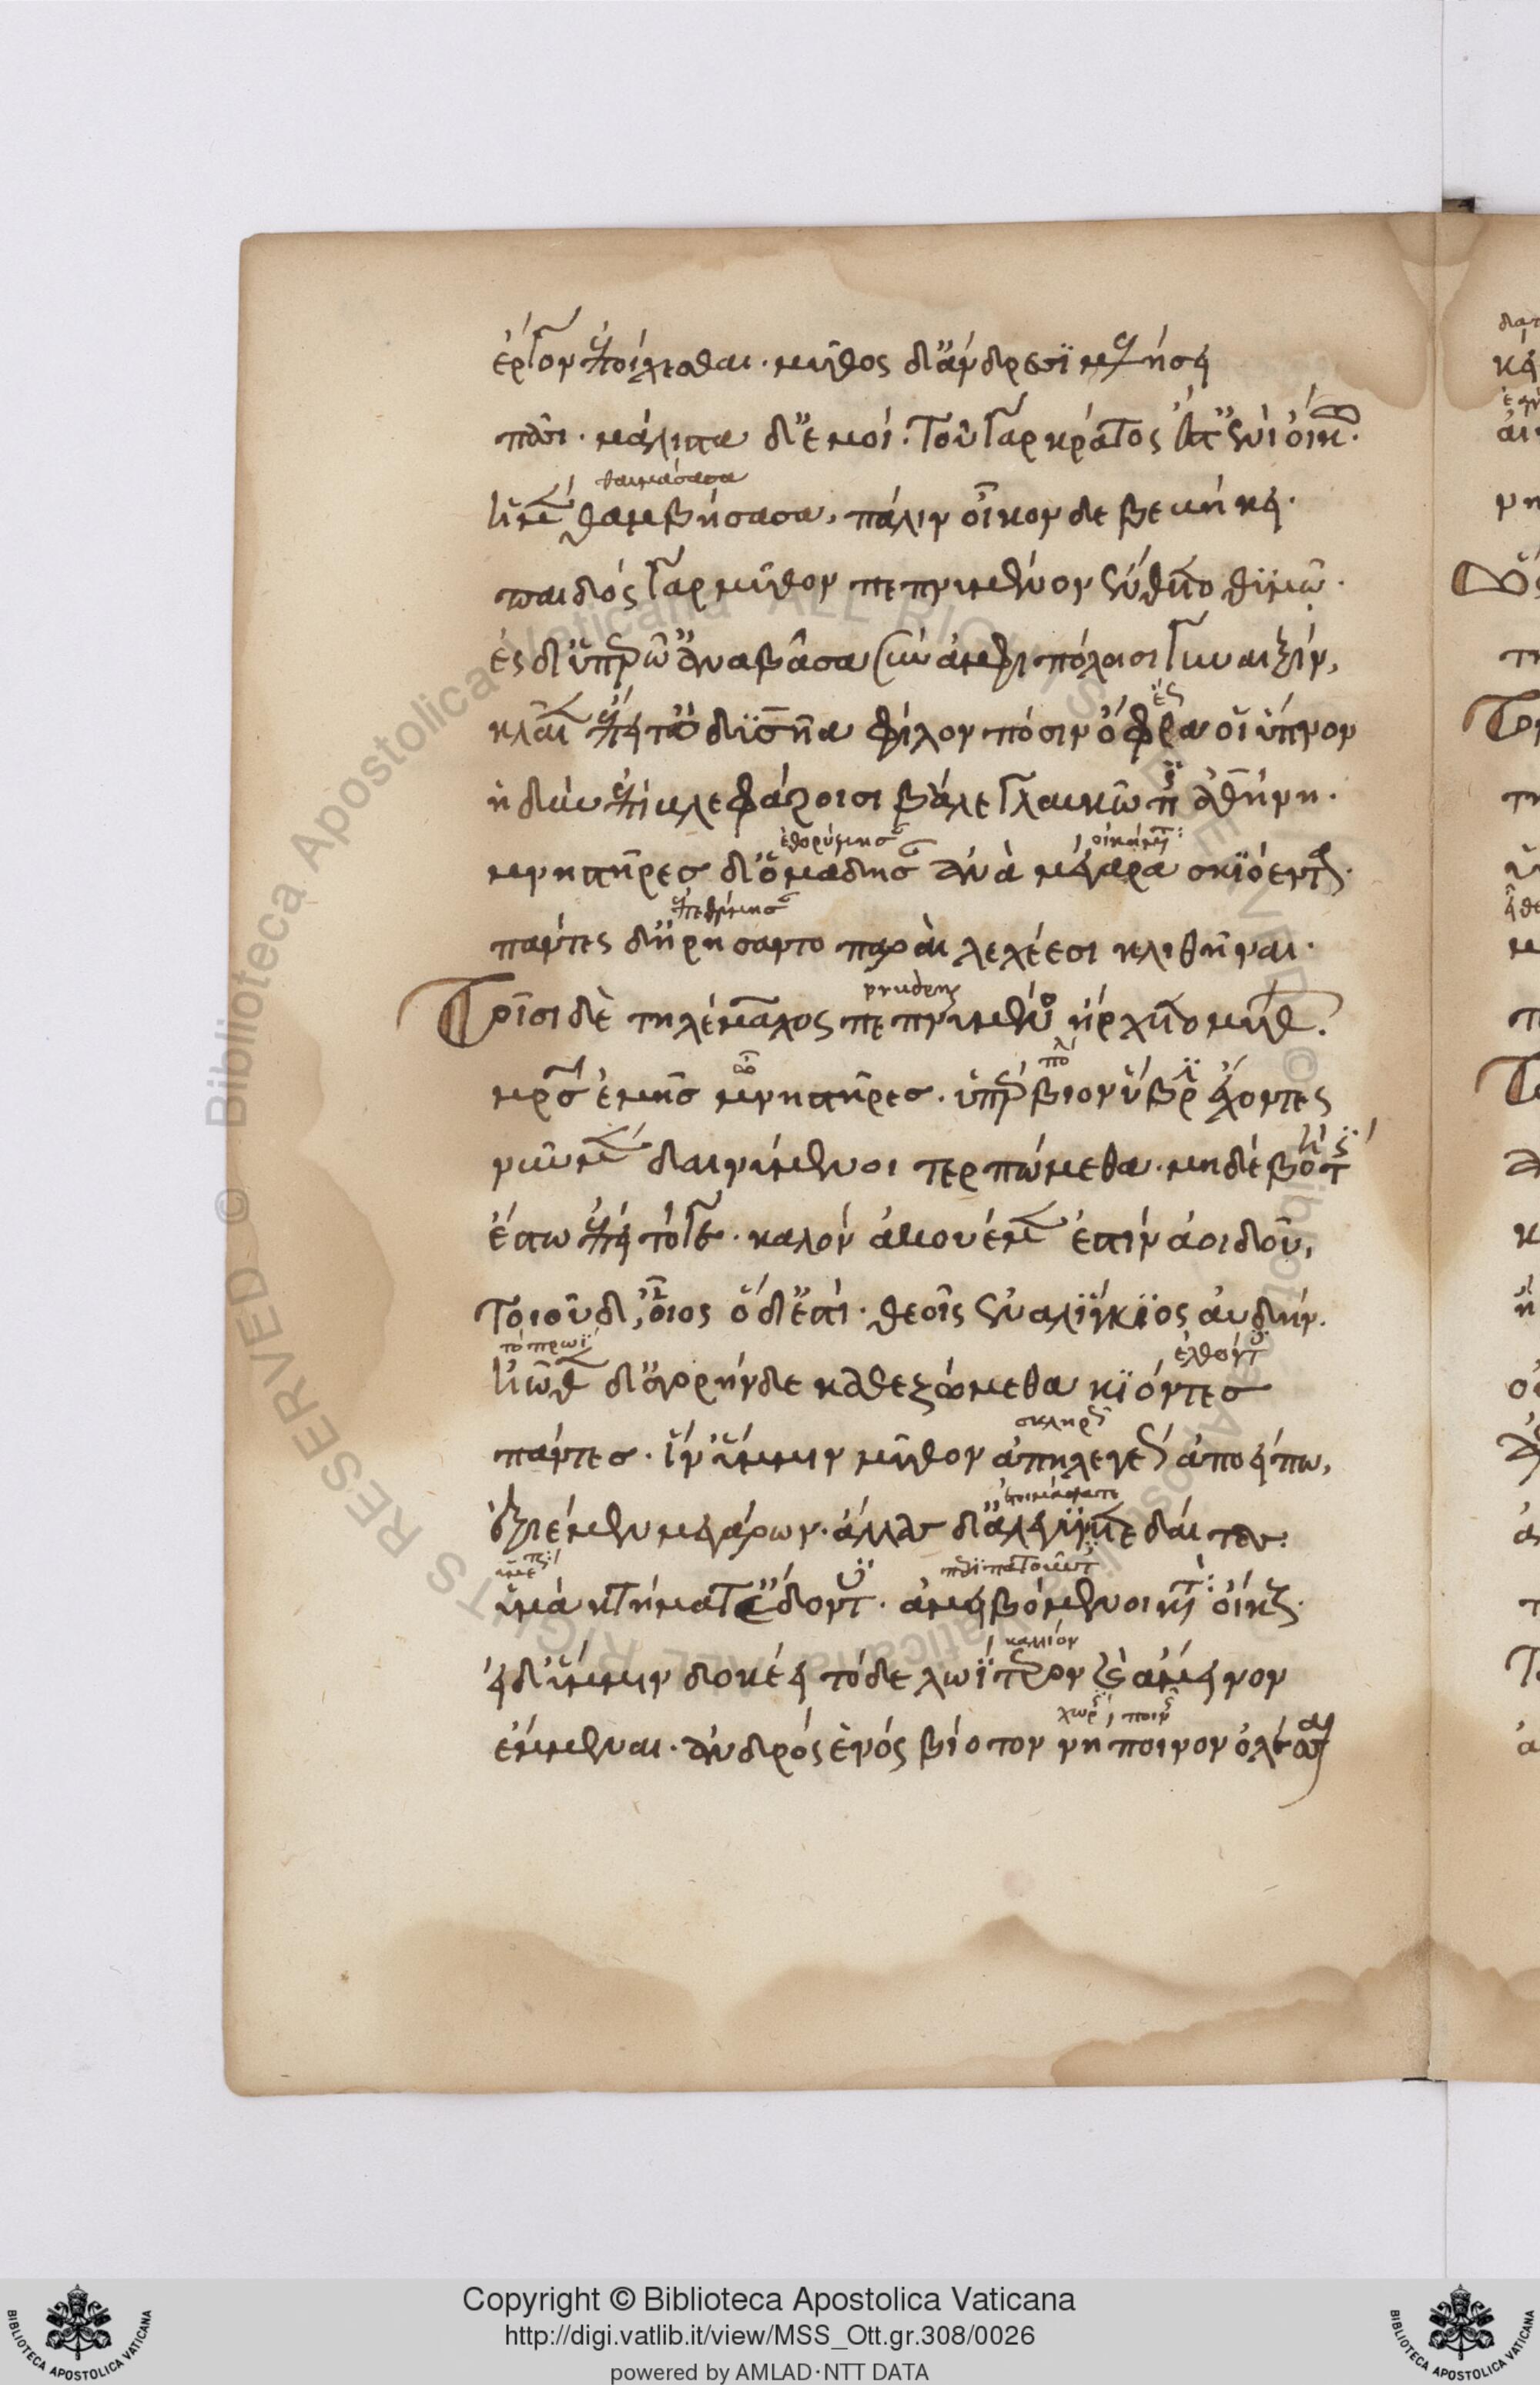 ἔργον ἐποίχεσθαι· μῦθος δ' ἄνδρεσϊ μελήσει
πᾶσι· μάλιστα δ' ἐμοί· τοῦ γὰρ κράτος ἔστ' ἐνὶ οἴκῳ·
θαυμάσασα
ἡ μὲν θαμβήσασα, πάλιν οἶκον δε βεβήκει·
παιδὸς γὰρ μῦθον πεπνυμένον ἔνθετο θϋμῶ·
ἐς δ' ὑπερῶ' ἀναβᾶσα σὺν ἀμφιπόλοισι γυναιξὶν,
ἕως
κλαῖεν ἔπειτ' ὀδϋσῆα φίλον πόσιν ὄφρα οἱ ὕπνον
ἡδὺν ἐπὶ βλεφάροισι βάλε γλαυκῶπις ἀθήνη·
ἐθορύβησαν οἰκήματα
μνηστῆρες δ' ὁμάδησαν ἀνὰ μέγαρα σκϊόεντα·
ἐπεθύμησαν
πάντες δ' ἠρήσαντο παραὶ λεχέεσι κλιθῆναι·
prudens
Τοῖσι δὲ τηλέμαχος πεπνυμένος ἤρχετο μύθων·
ὦ πολύ
μητρὸς ἐμῆς μνηστῆρες· ὑπέρβιον ὕβριν ἔχοντες
νῦν μὲν δαινύμενοι τερπώμεθα· μηδὲ βοητὺς
ἔστω ἐπεὶ τόγε· καλὸν ἀκουέμεν ἐστὶν ἀοιδοῦ,
τοιοῦδ', οἷος ὅδ' ἐστί· θεοῖς ἐναλίγκϊος αὐδήν.
τὸ πρωϊ ἐλθόντες
ἠῶθεν δ' ἀγορήνδε καθεζώμεθα κϊόντες
σκληρῶς
πάντες· ἵν' ὕμμιν μῦθον ἀπηλεγέως ἀποείπω,
ἑτοιμάσατε
ἐξιέμεν μεγάρων· ἄλλας δ' ἀλεγύνετε δαῖτας·
ὑμέτερα
ὑμὰ κτήματ' ἔδοντες· ἀμειβόμενοι κατὰ οἴκους·
κάλλιον
εἰ δ' ὕμμιν δοκέει τόδε λωΐτερον καὶ ἄμεινον
χωρὶς ποινῆς
ἔμμεναι· ἀνδρὸς ἑνὸς βίοτον νήποινον ὀλέσθαι
Copyright © Biblioteca Apostolica Vaticana
http://digi.vatlib.it/view/MSS_Ott.gr.308/0026
powered by AMLAD·NTT DATA